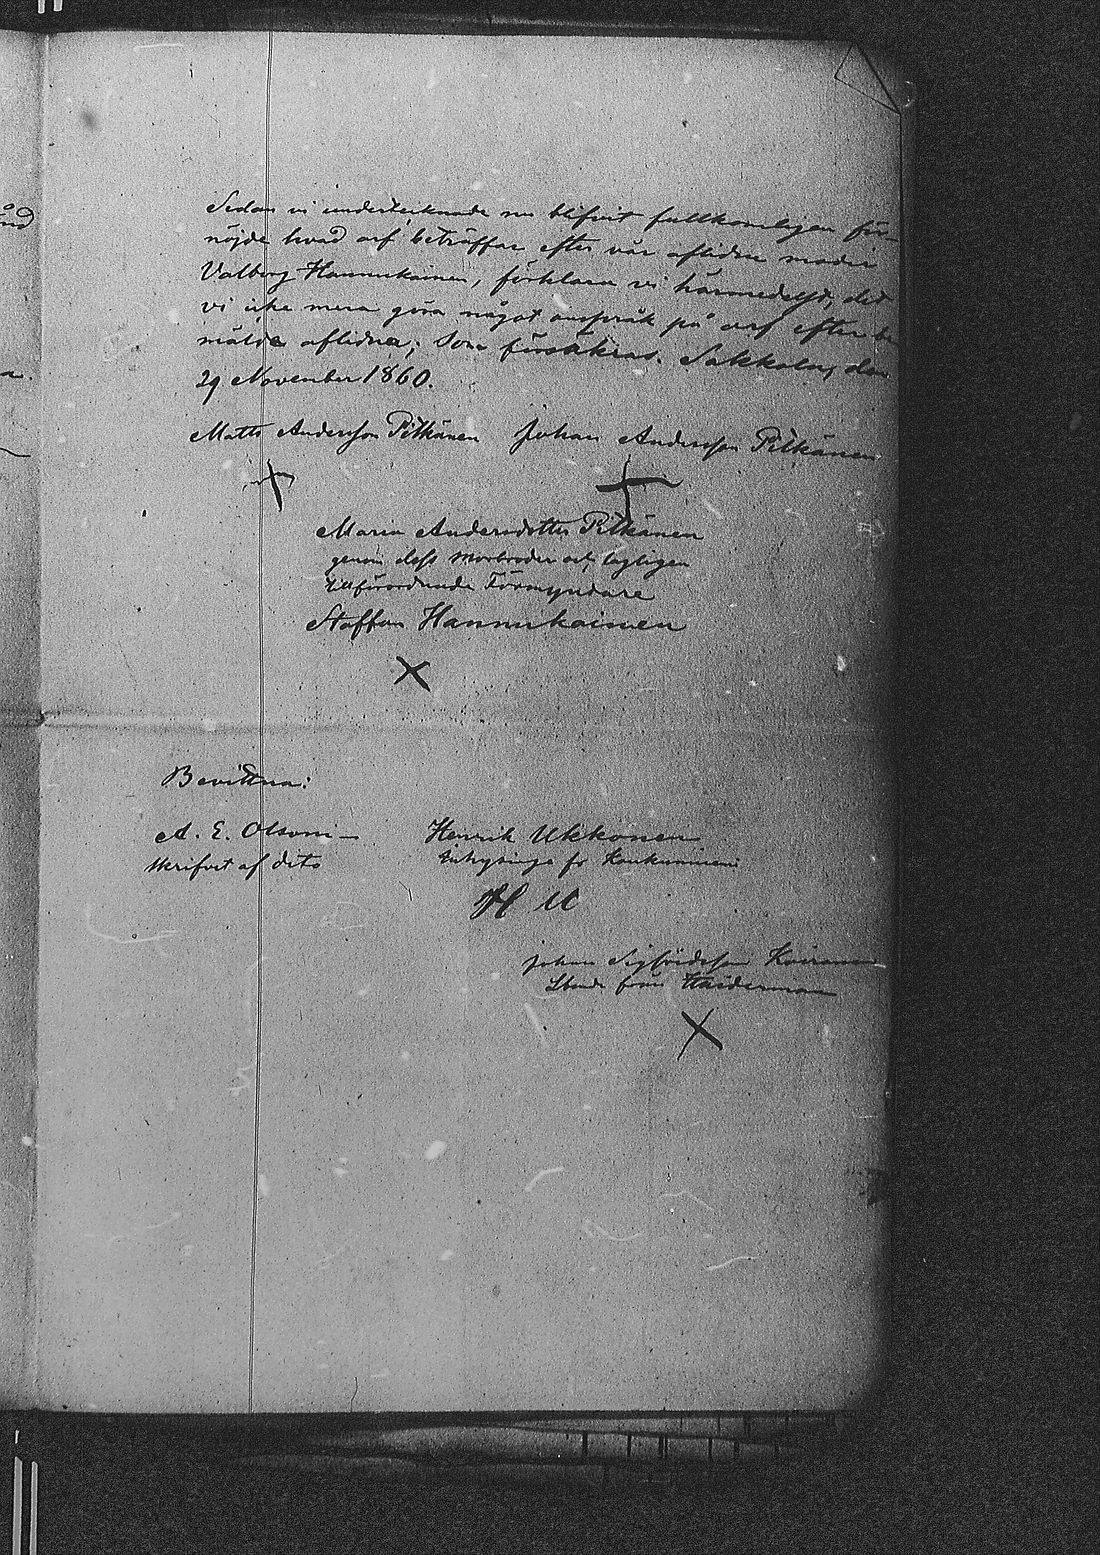 Sedan vi undertecknade nu blifvit fullkomligen för-
nöjde hvad arf beträffar efter vår aflidne moder
Valborg Hannukainen, förklara vi härmedelst, det
vi icke mera göra något anspråk på arf efter be
mälde aflidna; Som försäkras. Sakkola, den
29 November 1860.
Matts Andersson Pitkänen Johan Andersson Pitkänen
Maria Andersdotter Pitkänen
genom dess morbroder och lagligen
tillförordnade Förmyndare
Staffan Hannukainen
Bevittna:
A. E. Olsoni Henrik Ukkonen
skrifvit af dito från
H U
Johan Sigfridsson
från